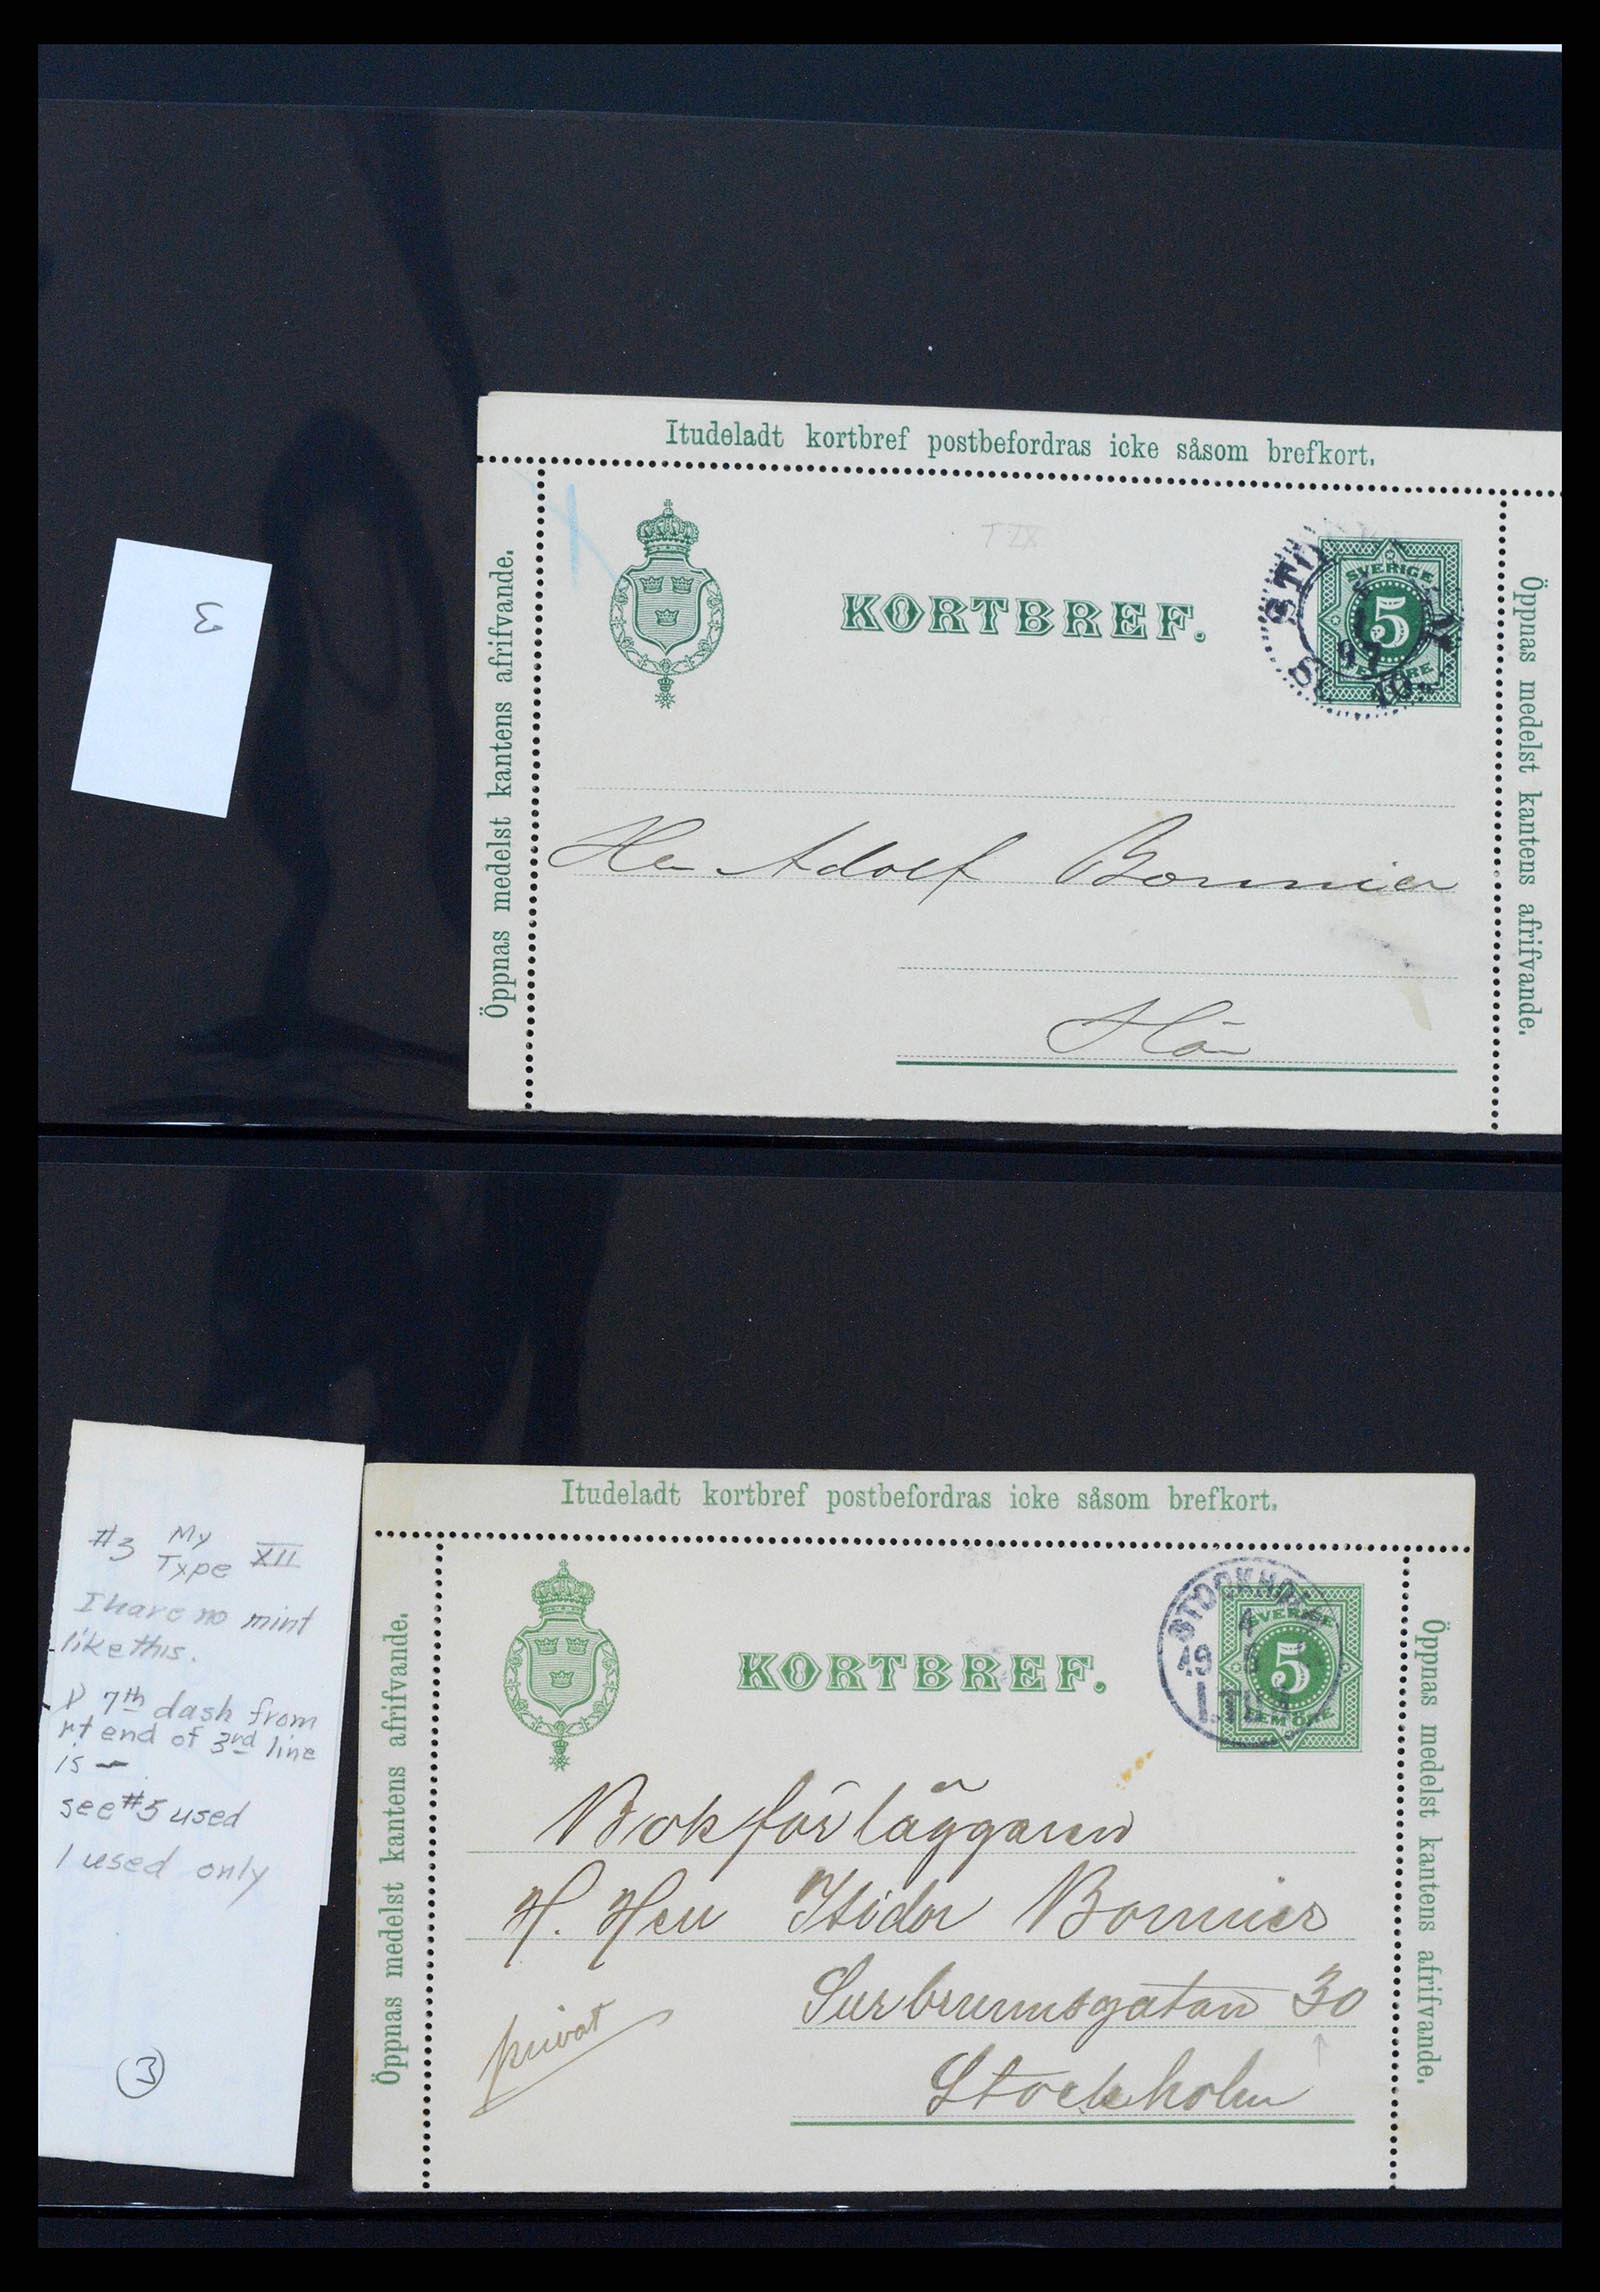 3
Itudeladt kortbref postbefordras icke såsom brefkort.
Öppnas medelst kantens afrifvande.
KORTBREF.
SVERIGE
5
FEM ÖRE
97
Öppnas medelst kantens afrifvande.
Herr Adolf Bonnier
Hör
#3 My Type XII
I have no mint
like this.
7th dash from
rt end of 3rd line
is –
see #5 used
1 used only
3
Itudeladt kortbref postbefordras icke såsom brefkort.
Öppnas medelst kantens afrifvande.
KORTBREF.
STOCKHOLM
19
1.TUR
SVERIGE
5
FEM ÖRE
Öppnas medelst kantens afrifvande.
Bokförläggaren
H. Herr Isidor Bonnier
Surbrunnsgatan 30
Stockholm
privat